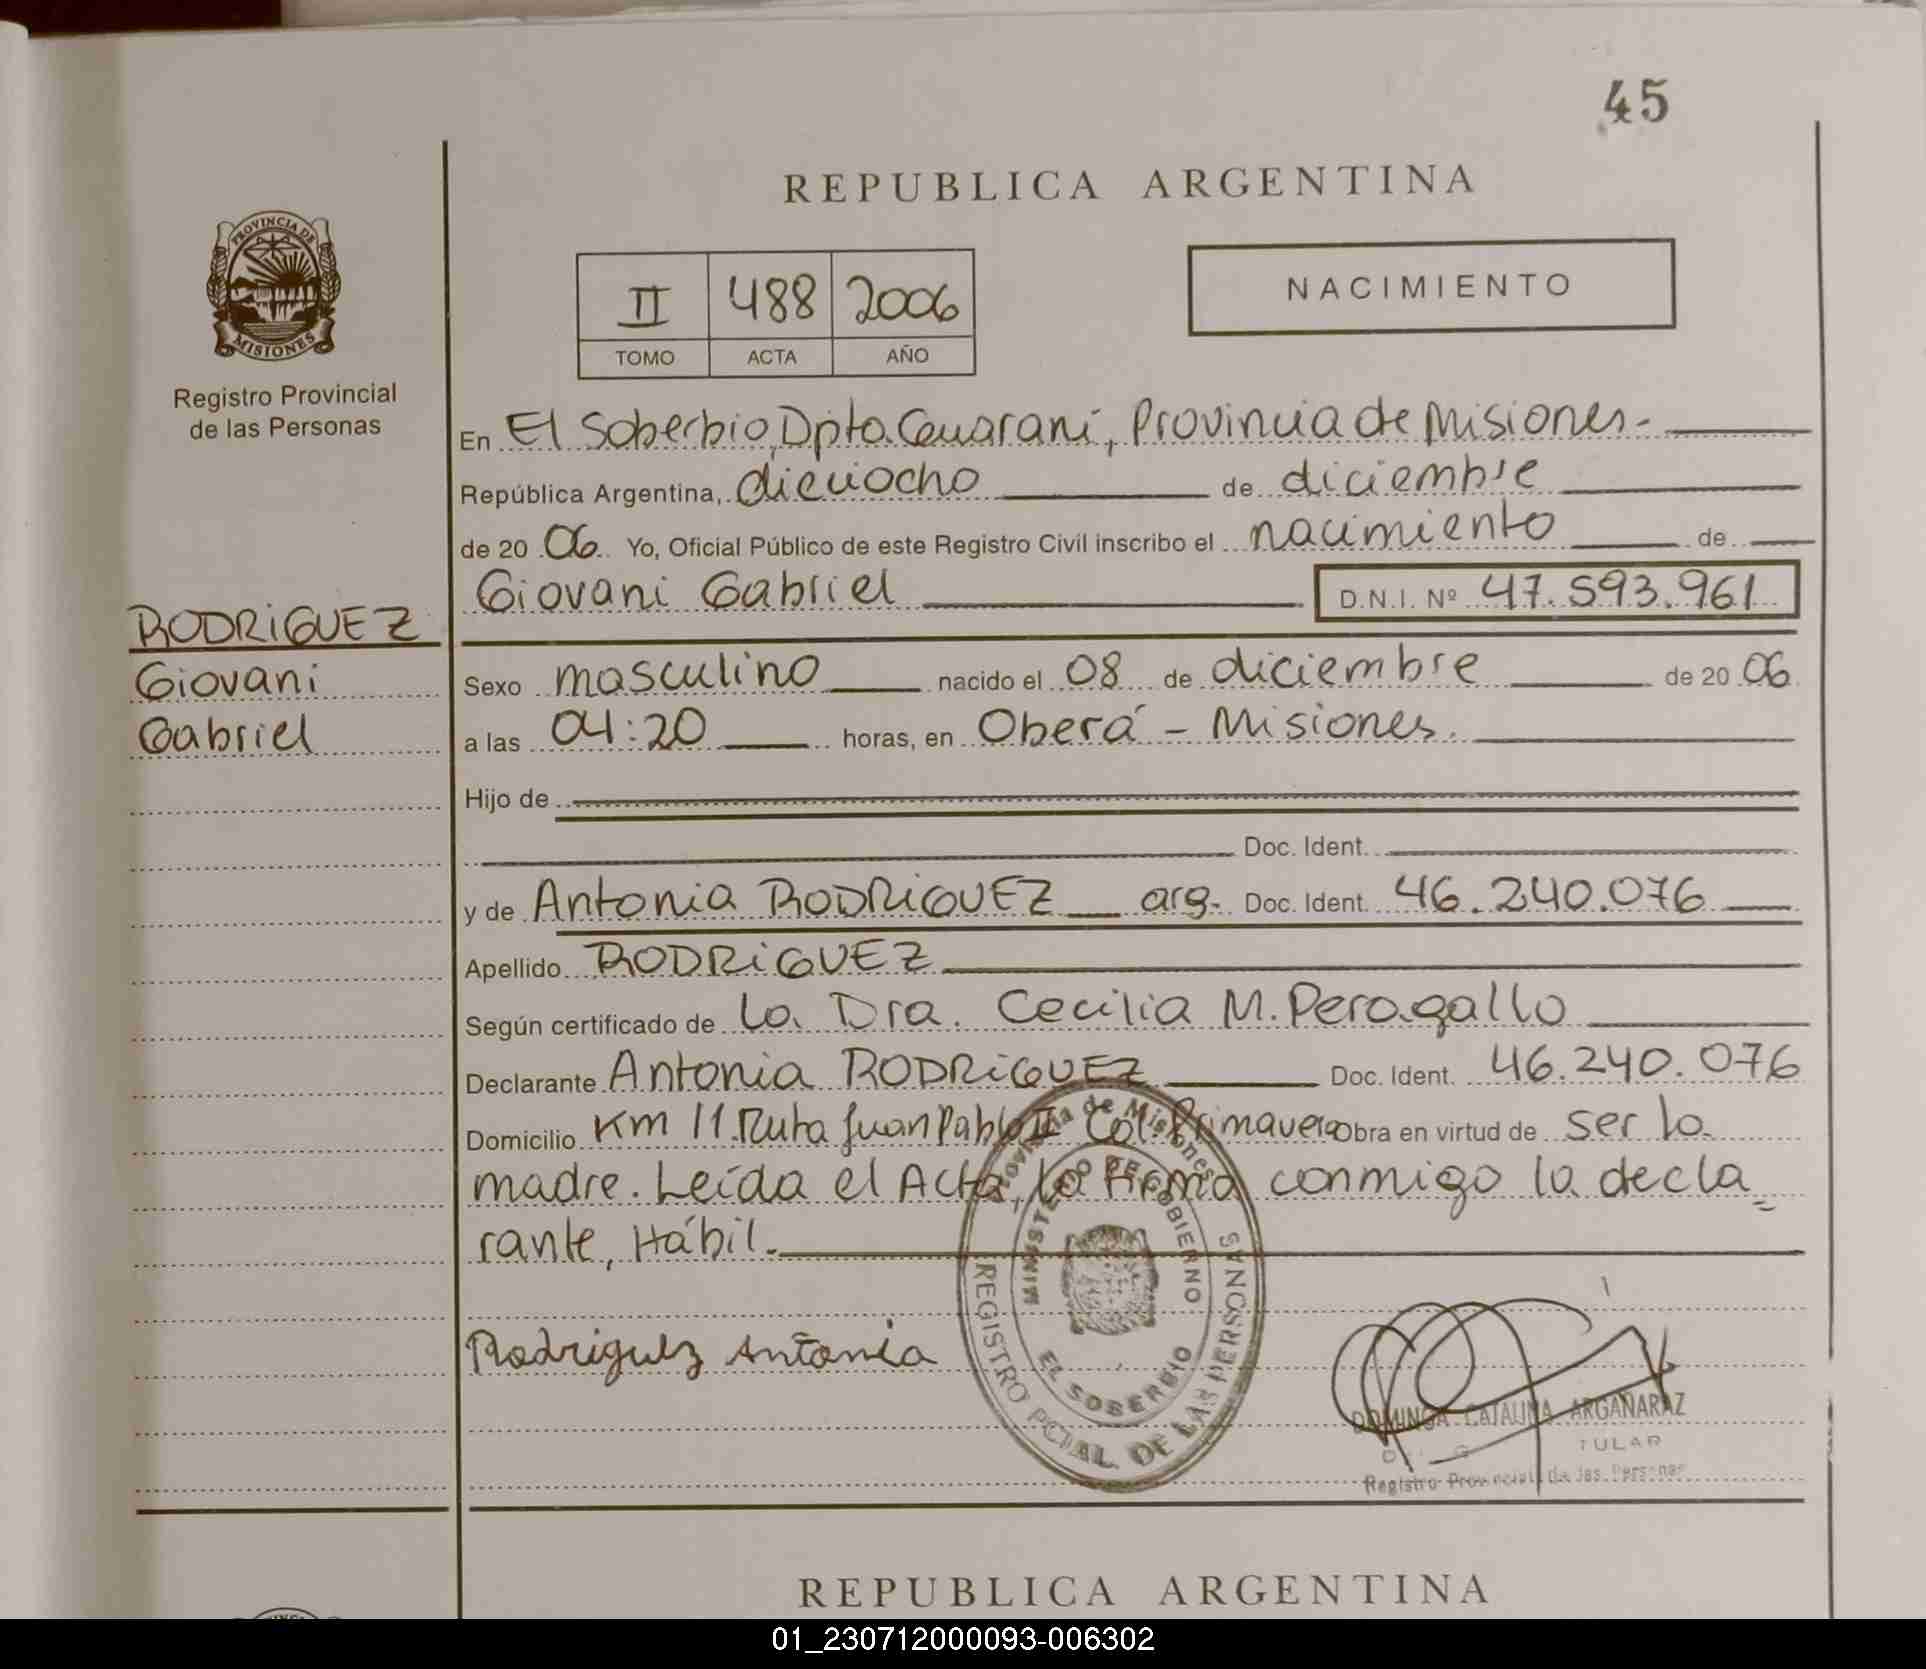 45
REPUBLICA ARGENTINA
PROVINCIA DE
MISIONES
Registro Provincial
de las Personas
II 488 2006
TOMO ACTA AÑO
NACIMIENTO
En El Soberbio, Dpto. Guaraní, Provincia de Misiones.-
República Argentina, dieciocho de diciembre
de 20 06 Yo, Oficial Público de este Registro Civil inscribo el nacimiento de
Giovani Gabriel D.N.I. Nº 47.593.961
RODRiGUEZ
Giovani
Gabriel
Sexo masculino nacido el 08 de diciembre de 20 06
a las 04:20 horas, en Oberá - Misiones.
Hijo de
Doc. Ident.
y de Antonia RODRiGUEZ arg. Doc. Ident. 46.240.076
Apellido RODRiGUEZ
Según certificado de la Dra. Cecilia M. Peragallo
Declarante Antonia RODRiGUEZ Doc. Ident. 46.240.076
Domicilio Km 11. Ruta Juan Pablo II Col. Primavera Obra en virtud de ser la
madre. Leída el Acta, la firma conmigo la decla=
rante, Hábil.-
Rodriguez Antonia
Provincia de Misiones
MINISTERIO DE GOBIERNO
EL SOBERBIO
REGISTRO PCIAL. DE LAS PERSONAS
DOMINGA CATALINA ARGAÑARAZ
TULAR
Registro Provincial de las Personas
REPUBLICA ARGENTINA
01_230712000093-006302